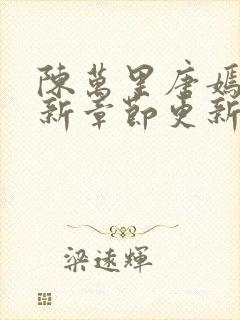 陳萬里唐嫣
新章節更新
梁遠輝